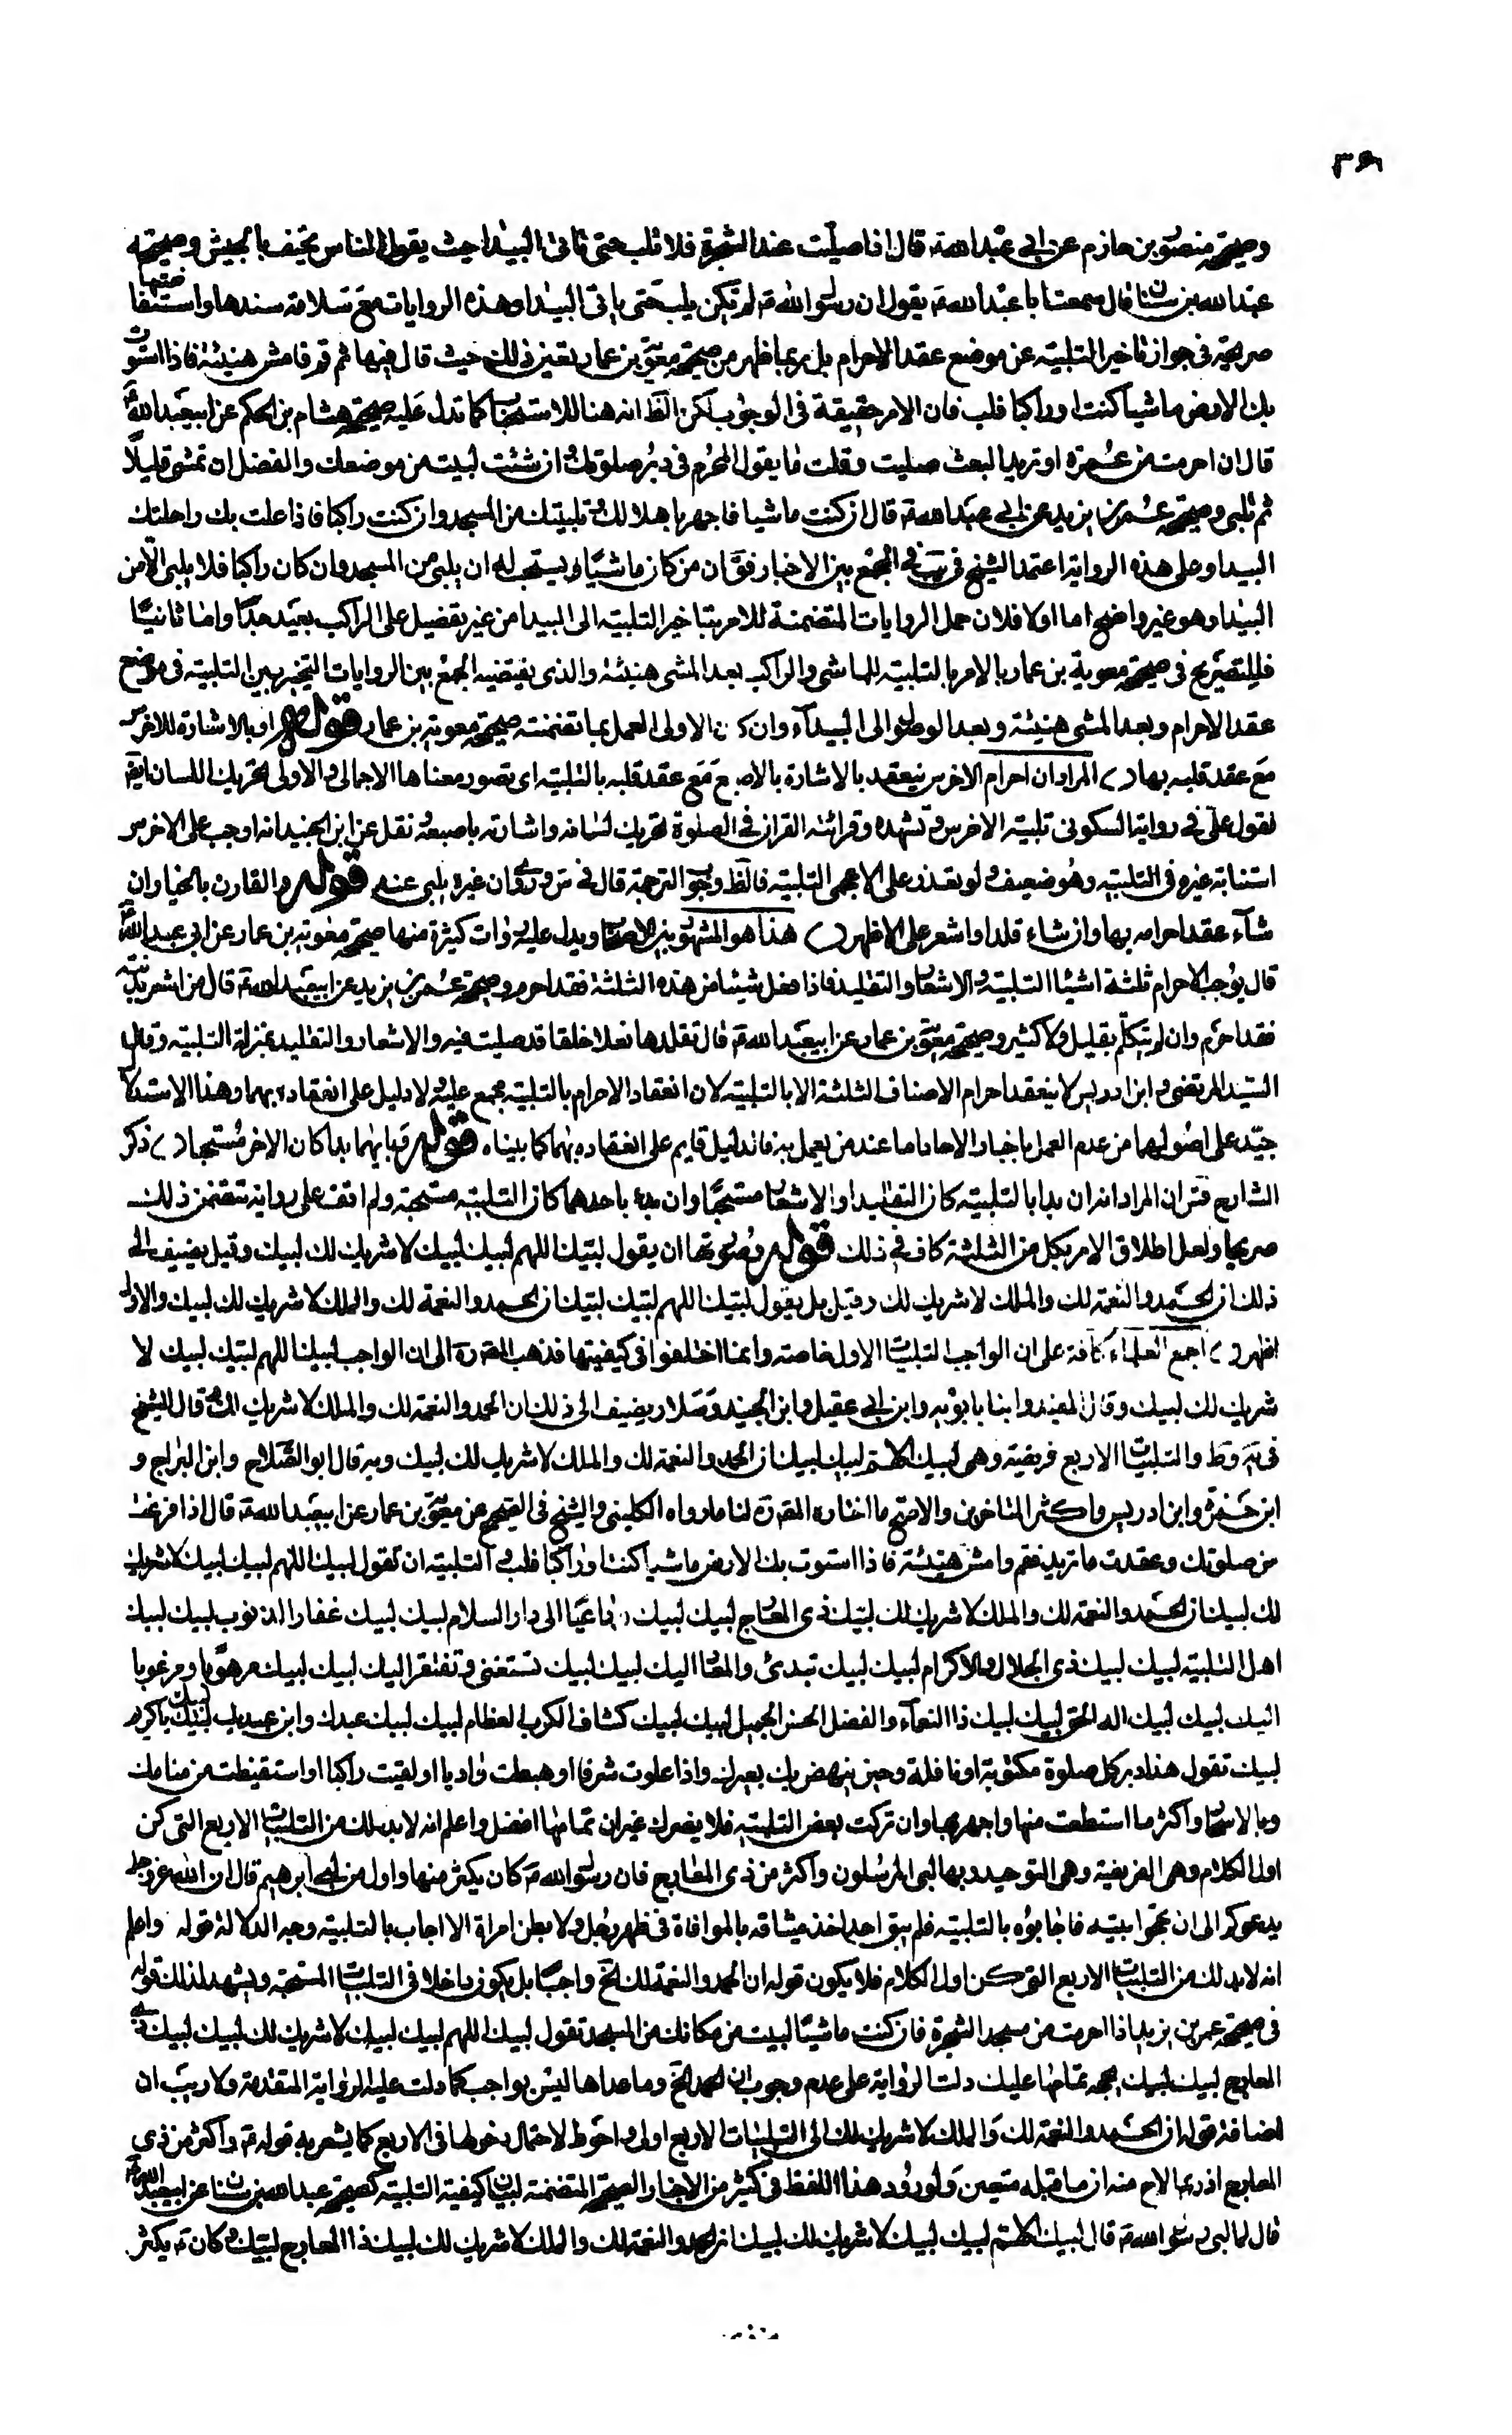 وصحيحة منصور بن حازم عن ابي عبد الله ع قال اذا صليت عند الشجرة فلا تلب حتى تاتى البيدا حيث يقول الناس يخسف بالجيش وصحيحة
عبد الله بن سنان قال سمعت ابا عبد الله ع يقول ان رسول الله ص لم يكن يلب حتى ياتى البيدا وهذه الروايات مع سلامة سندها واستفاضتها
صريحة فى جواز تاخير التلبية عن موضع عقد الاحرام بل ربما ظهر من صحيحة معوية بن عمار تعين ذلك حيث قال فيها ثم قم فامش هنيئة فاذا استوت
بك الارض ماشيا كنت او راكبا فلب فان الامر حقيقة فى الوجوب لكن الظ انه هنا للاستحباب كما تدل عليه صحيحة هشام بن الحكم عن ابيعبد الله ع
قال ان احرمت من غمرة او بريد البعث صليت وقلت ما يقول المحرم فى دبر صلوتك وان شئت لبيت من موضعك والفضل ان تمشى قليلا
ثم تلبى وصحيحة عمر بن يزيد عن ابي عبد الله ع قال ان كنت ماشيا فاجهر باهلالك وتلبيتك من المسجد وان كنت راكبا فاذا علت بك راحلتك
البيدا وعلى هذه الرواية اعتمد الشيخ فى يب فى الجمع بين الاخبار فق ان من كان ماشيا يستحب له ان يلبى من المسجد وان كان راكبا فلا يلبى الا من
البيدا وهو غير واضح اما اولا فلان حمل الروايات المتضمنة للامر بتاخير التلبية الى البيدا من غير تفضيل على الراكب بعيد جدا واما ثانيا
فللتصريح فى صحيحة معوية بن عمار بالامر بالتلبية للماشى والراكب بعد المشى هنيئة والذى يقتضيه الجمع بين الروايات التخيير بين التلبية فى موضع
عقد الاحرام وبعد المشى هنيئة وبعد الوصول الى البيداء وان كان الاولى العمل بما تضمنته صحيحة معوية بن عمار قوله او بالاشارة للاخرس
مع عقد قلبه بها المراد ان احرام الاخرس ينعقد بالاشارة بالاصبع مع عقد قلبه بالتلبية اى تصور معناها الاجمالى والاولى تحريك اللسان ايضا
لقول على ع فى رواية السكونى تلبية الاخرس وتشهده وقرائته القران فى الصلوة تحريك لسانه واشارته باصبعه ونقل عن ابن الجنيد انه اوجب على الاخرس
استنابة غيره فى التلبية وهو ضعيف ولو تعذر على الاعجمى التلبية فالظ وجوب الترجمة قال فى س وروى ان غيره يلبى عنه قوله والقارن بالخيار ان
شاء عقد احرامه بها وان شاء قلد او اشعر على الاظهر هذا هو المشهور بين الاصحاب ويدل عليه روايات كثيرة منها صحيحة معوية بن عمار عن ابى عبد الله ع
قال يوجب الاحرام ثلثة اشيا التلبية والاشعار والتقليد فاذا فعل شيئا من هذه الثلثة فقد احرم وصحيحة عمر بن يزيد عن ابيعبد الله ع قال من اشعر بدنته
فقد احرم وان لم يتكلم بقليل ولا كثير وصحيحة معوية بن عمار عن ابيعبد الله ع قال تقلدها نعلا خلقا قد صليت فيه والاشعار والتقليد بمنزلة التلبية وقال
السيد المرتضى وابن ادريس لا ينعقد احرام الاصناف الثلثة الا بالتلبية لان انعقاد الاحرام بالتلبية مجمع عليه ولا دليل على انعقاده بهما وهذا الاستدلال
جيد على اصولهما من عدم العمل باخبار الاحاد اما عند من يعمل به فالدليل قايم على انعقاده بهما كما بيناه قوله وبايهما بدا كان الاخر مستحبا ذكر
الشارح قس ان المراد انه ان بدا بالتلبية كان التقليد او الاشعار مستحبا وان بدء باحدهما كان التلبية مستحبة ولم اقف على رواية تتضمن ذلك
صريحا ولعل اطلاق الامر بكل من الثلثة كاف فى ذلك قوله وصورتها ان يقول لبيك اللهم لبيك لبيك لا شريك لك لبيك وقيل يضيف الى
ذلك ان الحمد والنعمة لك والملك لا شريك لك وقيل بل يقول لبيك اللهم لبيك لبيك ان الحمد والنعمة لك والملك لا شريك لك لبيك والاول
اظهر اجمع العلماء كافة على ان الواجب التلبيات الاربع خاصة وانما اختلفوا فى كيفيتها فذهب المص ره الى ان الواجب لبيك اللهم لبيك لبيك لا
شريك لك لبيك وقال المفيد وابنا بابويه وابن ابى عقيل وابن الجنيد وسلار يضيف الى ذلك ان الحمد والنعمة لك والملك لا شريك لك وقال الشيخ
فى يه وط والتلبيات الاربع فريضة وهى لبيك اللهم لبيك لبيك ان الحمد والنعمة لك والملك لا شريك لك لبيك وبه قال ابو الصلاح وابن البراج و
ابن حمزة وابن ادريس واكثر المتاخرين والاصح ما اختاره المص ره لنا ما رواه الكلينى والشيخ فى الصحيح عن معوية بن عمار عن ابيعبد الله ع قال اذا فرغت
من صلوتك وعقدت ما تريد فقم وامش هنيئة فاذا استوت بك الارض ماشيا كنت او راكبا فلب والتلبية ان تقول لبيك اللهم لبيك لبيك لا شريك
لك لبيك ان الحمد والنعمة لك والملك لا شريك لك لبيك ذى المعارج لبيك لبيك داعيا الى دار السلام لبيك لبيك غفار الذنوب لبيك لبيك
اهل التلبية لبيك لبيك ذى الجلال والاكرام لبيك لبيك تبدئ والمعاد اليك لبيك لبيك تستغنى وتفتقر اليك لبيك لبيك مرهوبا ومرغوبا
اليك لبيك لبيك اله الحق لبيك لبيك ذا النعماء والفضل الحسن الجميل لبيك لبيك كشاف الكرب العظام لبيك لبيك عبدك وابن عبديك لبيك لبيك يا كريم
لبيك تقول هذا دبر كل صلوة مكتوبة او نافلة وحين ينهض بك بعيرك واذا علوت شرفا او هبطت واديا او لقيت راكبا او استيقظت من منامك
وبالاسحار واكثر ما استطعت منها واجهر بها وان تركت بعض التلبية فلا يضرك غير ان تمامها افضل واعلم انه لا بد لك من التلبيات الاربع التى كن
اول الكلام وهى الفريضة وهى التوحيد وبها لبى المرسلون واكثر من ذى المعارج فان رسول الله ص كان يكثر منها واول من لبى ابرهيم قال ان الله عز وجل
يدعوكم الى ان تحجوا بيته فاجابوه بالتلبية فلم يبق احد اخذ ميثاقه بالموافاة فى ظهر رجل ولا بطن امراة الا اجاب بالتلبية وجه الدلالة قوله واعلم
انه لا بد لك من التلبيات الاربع التى كن اول الكلام فلا يكون قوله ان الحمد والنعمة لك الخ واجبا بل يكون داخلا فى التلبيات المستحبة ويشهد لذلك قوله
فى صحيحة عمر بن يزيد اذا احرمت من مسجد الشجرة فان كنت ماشيا لبيت من مكانك من المسجد تقول لبيك اللهم لبيك لبيك لا شريك لك لبيك لبيك ذى
المعارج لبيك لبيك بحجة تمامها عليك دلت الرواية على عدم وجوب ان الحمد الخ وما عداها ليس بواجب كما دلت عليه الرواية المتقدمة ولا ريب ان
اضافة قوله ان الحمد والنعمة لك والملك لا شريك لك الى التلبيات الاربع اولى واحوط لاحتمال دخولها فى الاربع كما يشعر به قوله ع واكثر من ذى
المعارج اذ ربما لاح منه ان ما قبله متعين ولورود هذا اللفظ فى كثير من الاخبار الصحيحة المتضمنة لبيان كيفية التلبية كصحيحة عبد الله بن سنان عن ابيعبد الله ع
قال لما لبى رسول الله ص قال لبيك اللهم لبيك لبيك لا شريك لك لبيك ان الحمد والنعمة لك والملك لا شريك لك لبيك ذا المعارج لبيك وكان ص يكثر